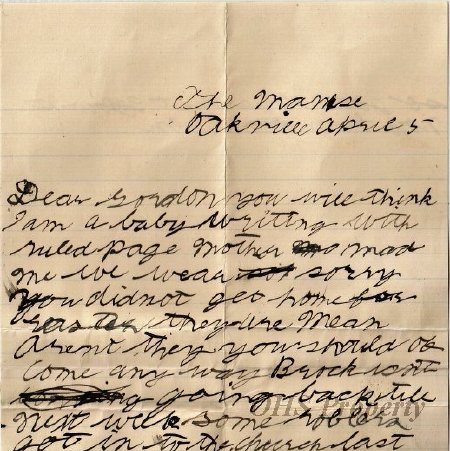 The Manse
Oakville April 5
Dear Gordon you will think
I am a baby writing with
ruled page Mother mad
me We wear sorry
you did not get home for
Easter they are Mean
Arent they you should of
Come any way Brock isnt
going back till
next week some robbers
got in to the church last
OHS Property